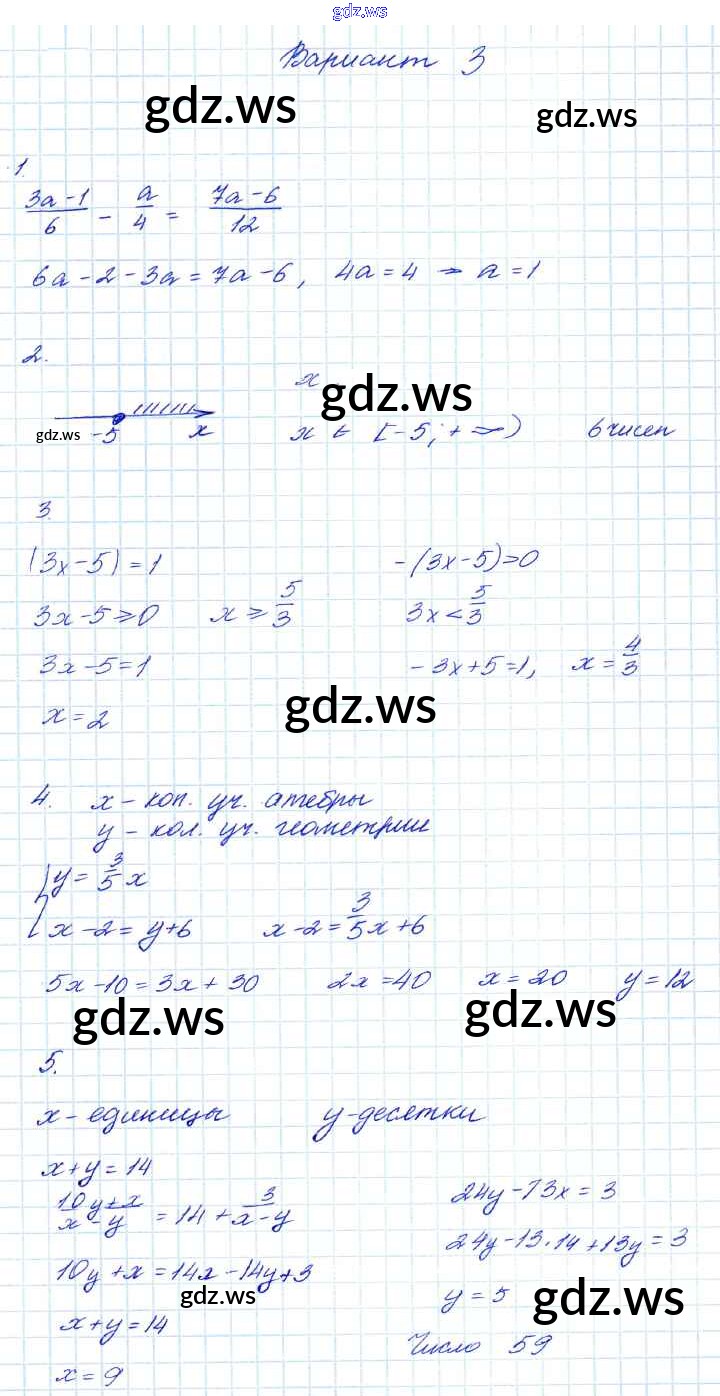 gdz.ws
Вариант 3
gdz.ws gdz.ws
1.
(3a-1)/6 - a/4 = (7a-6)/12
6a-2-3a=7a-6, 4a=4 → a=1
2.
x
gdz.ws
gdz.ws -5 x x ∈ [-5; +∞) 6 чисел
3.
|3x-5|=1 -(3x-5)>0
3x-5≥0 x ≥ 5/3 3x < 5/3
3x-5=1 -3x+5=1, x = 4/3
gdz.ws
x=2
4. x - кол. уч. алгебры
y - кол. уч. геометрии
{ y = 3/5 x
x-2=y+6 x-2= 3/5 x+6
5x-10=3x+30 2x=40 x=20 y=12
gdz.ws gdz.ws
5.
x - единицы y - десятки
x+y=14
(10y+x)/(x-y) = 14 + 3/(x-y) 24y-13x=3
10y+x=14x-14y+3 24y-13·14+13y=3
gdz.ws y=5 gdz.ws
x+y=14
Число 59
x=9